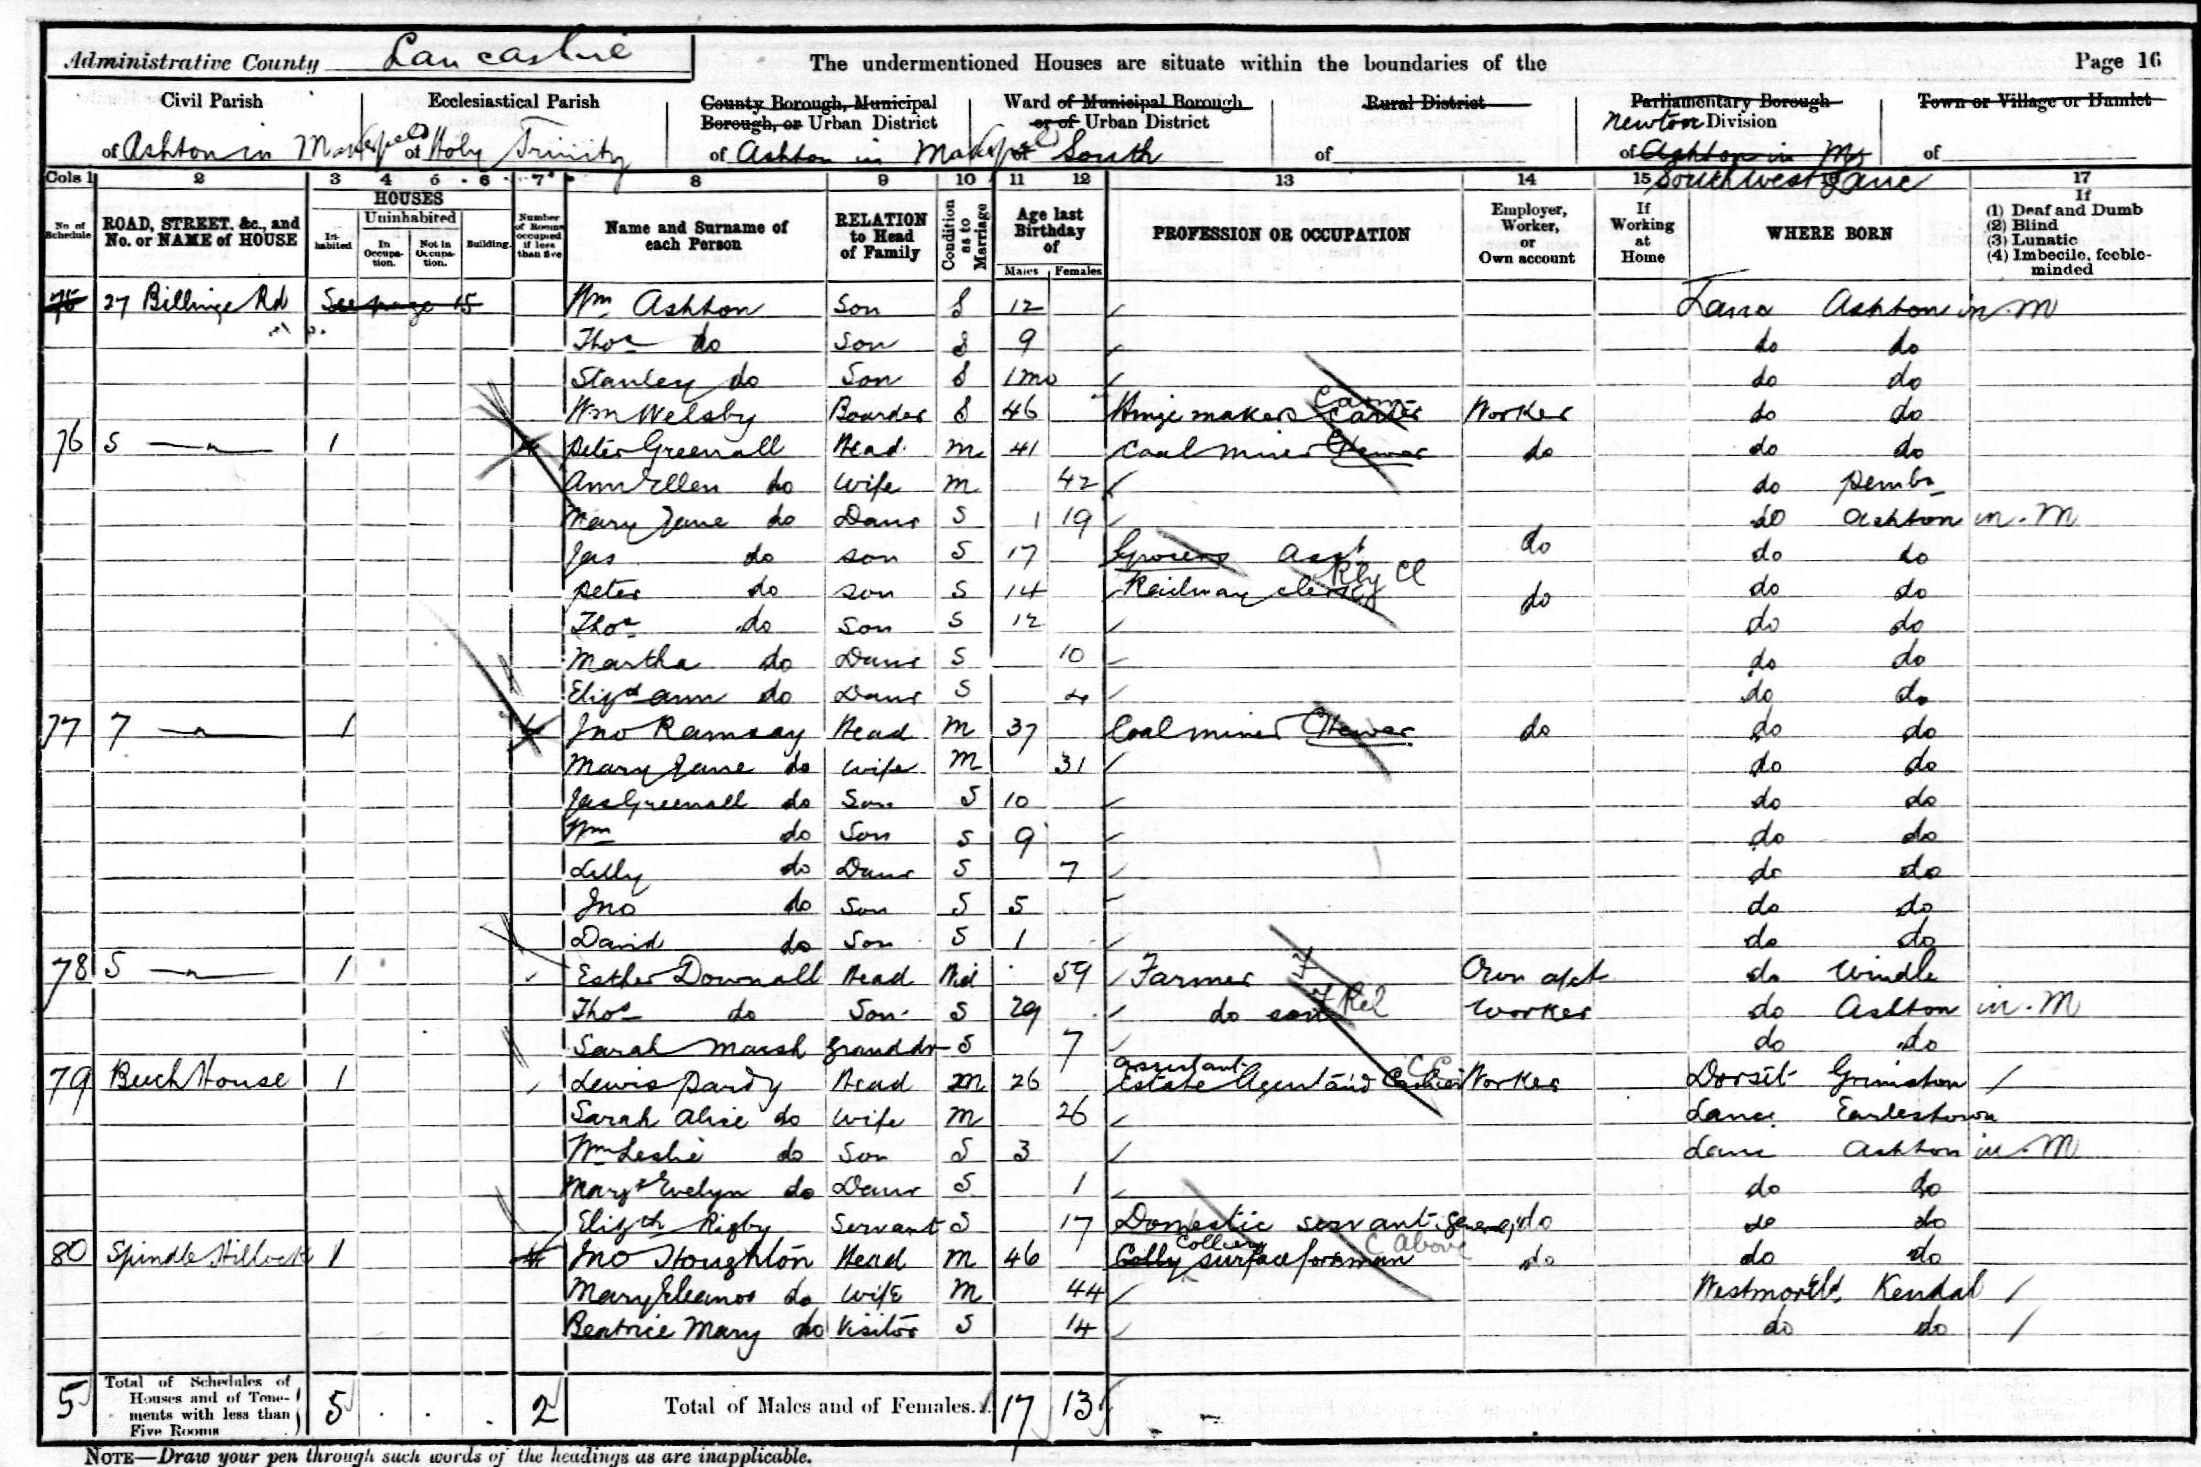 Administrative County Lancashire The undermentioned Houses are situate within the boundaries of the Page 16
Civil Parish Ecclesiastical Parish County Borough, Municipal Borough, or Urban District Ward of Municipal Borough or of Urban District Rural District Parliamentary Borough Newton Division Town or Village or Hamlet
of Ashton in Makerfield of Holy Trinity of Ashton in Makerfield of South of of Ashton in M of
Southwest Lanc
Cols 1 2 3 4 5 6 7 8 9 10 11 12 13 14 15 16 17
No. of Schedule ROAD, STREET, &c., and No. or NAME of HOUSE HOUSES Inhabited Uninhabited In Occupation. Not in Occupation. Building. Number of Rooms occupied if less than five Name and Surname of each Person RELATION to Head of Family Condition as to Marriage Age last Birthday of Males Females PROFESSION OR OCCUPATION Employer, Worker, or Own account If Working at Home WHERE BORN If (1) Deaf and Dumb (2) Blind (3) Lunatic (4) Imbecile, feeble-minded
75 27 Billinge Rd See page 15 Wm Ashton Son S 12 Lanc Ashton in M
Thos do Son S 9 do do
Stanley do Son S 1mo do do
Wm Welsby Boarder S 46 Hinge maker Worker do do
76 5 1 Peter Greenall Head M 41 Coal Miner Hewer do do do
Ann Ellen do Wife M 42 do Pemb
Mary Jane do Daur S 19 do Ashton in M
Jas do Son S 17 Grocers Asst do do do
Peter do Son S 14 Railway clerk Rly Cl do do do
Thos do Son S 12 do do
Martha do Daur S 10 do do
Elizth Ann do Daur S 4 do do
77 7 1 4 Jno Ramsay Head M 37 Coal miner Hewer do do do
Mary Jane do Wife M 31 do do
Jas Greenall do Son S 10 do do
Wm do Son S 9 do do
Lilly do Daur S 7 do do
Jno do Son S 5 do do
David do Son S 1 do do
78 5 1 Esther Downall Head Wid 59 Farmer Own a/ct do Windle
Thos do Son S 29 do son Rel Worker do Ashton in M
Sarah Marsh Granddr S 7 do do
79 Beech House 1 Lewis Pardy Head M 26 assistant Estate Agent and Cashier Worker Dorset Grimston
Sarah Alice do Wife M 26 Lanc Earlestown
Wm Leslie do Son S 3 Lanc Ashton in M
Mary Evelyn do Daur S 1 do do
Elizth Rigby Servant S 17 Domestic servant General do do do
80 Spindle Hillock 1 Jno Houghton Head M 46 Colly Colliery surface foreman C Above do do do
Mary Eleanor do Wife M 44 Westmorld. Kendal
Beatrice Mary do Visitor S 14 do do
5 Total of Schedules of Houses and of Tenements with less than Five Rooms 5 2 Total of Males and of Females 17 13
NOTE—Draw your pen through such words of the headings as are inapplicable.